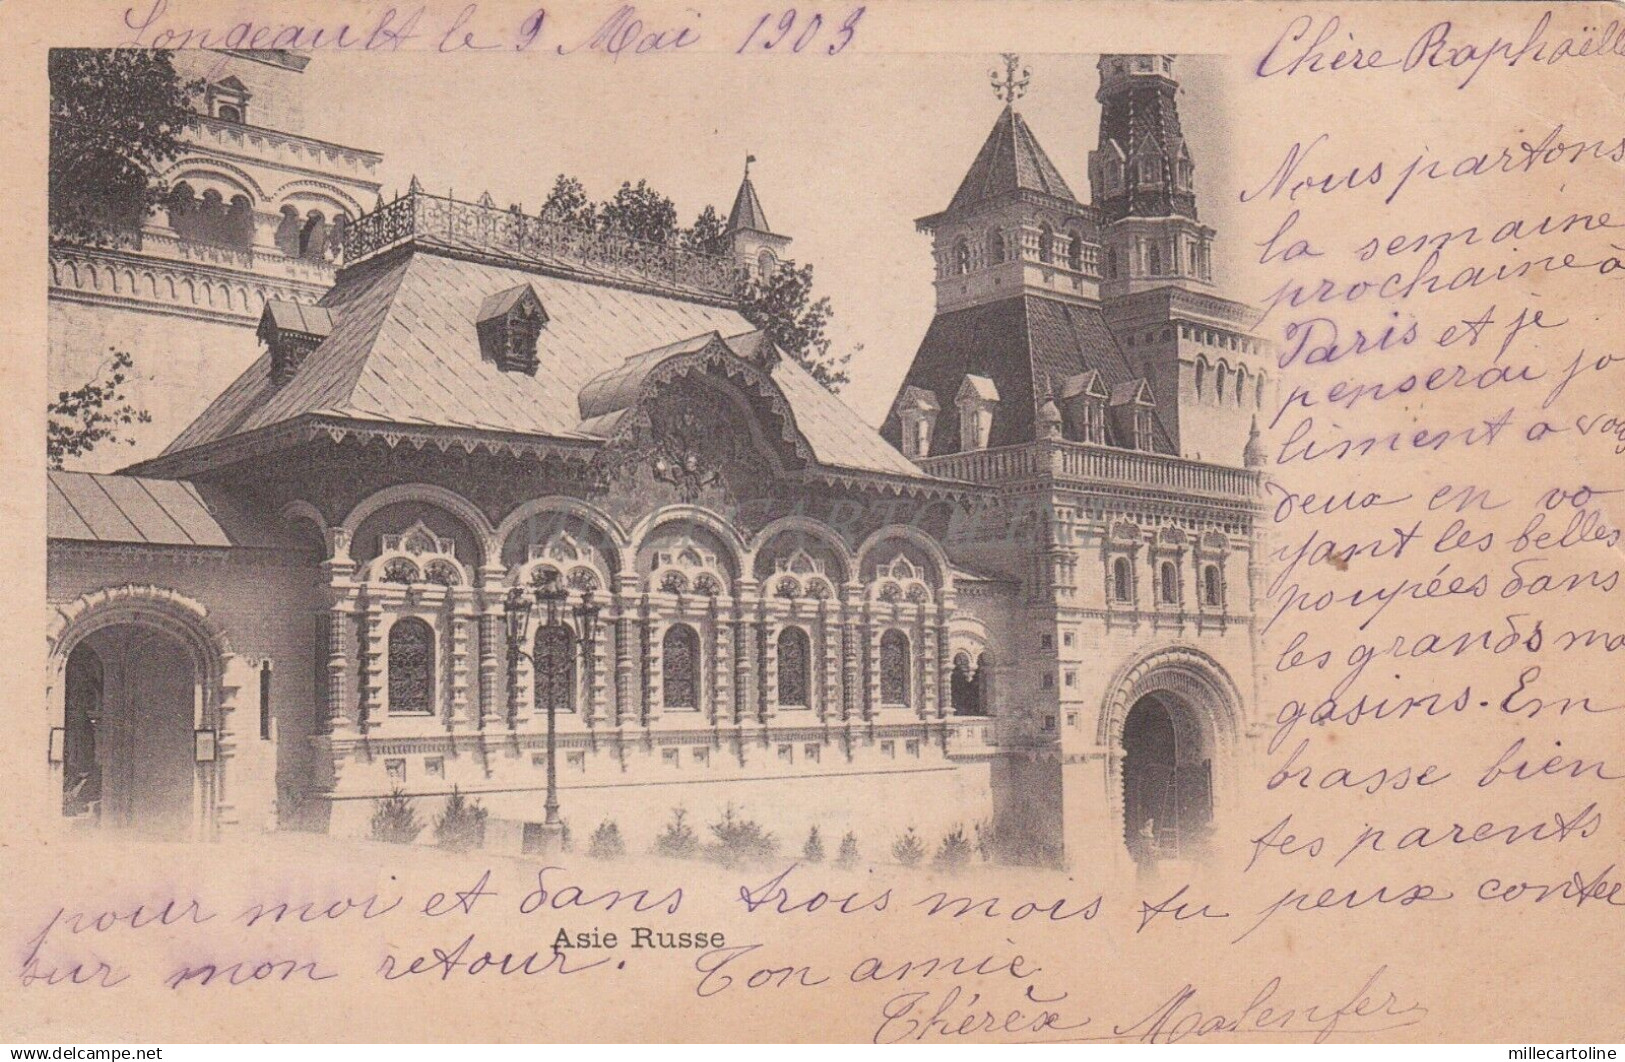 Longeault le 9 Mai 1903
Chère Raphaëlle
Nous partons
la semaine
prochaine à
Paris et je
penserai jo
liment a vous
deux en vo
yant les belles
poupées dans
les grands ma
gasins. Em
brasse bien
tes parents
pour moi et dans trois mois tu peux conter
sur mon retour. Ton amie
Thérèse Malenfer
Asie Russe
MILLECARTOLINE
delcampe.net
millecartoline